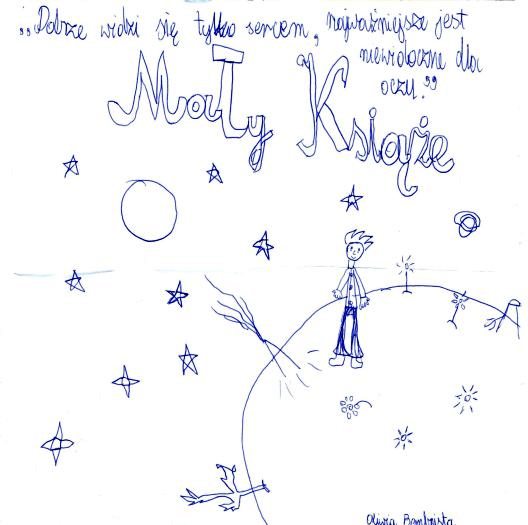 „Dobrze widzi się tylko sercem, najważniejsze jest
niewidoczne dla
oczu."
Mały Książę
Oliwia